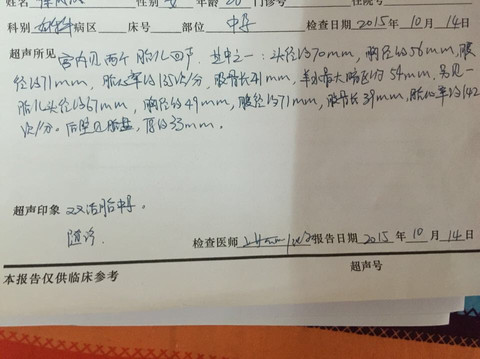 姓名 性别 女 年龄 20 门诊号 住院号
科别 妇产科 病区 床号 部位 中孕 检查日期 2015 年 10 月 14 日
超声所见 宫内见两个胎儿回声。其中之一:头径约70mm,胸径约56mm,腹
径约71mm,胎心率约135次/分,股骨长41mm,羊水最大暗区约54mm,另见一
胎儿头径约67mm,胸径约49mm,腹径约71mm,股骨长39mm,胎心率约142
次/分。后壁见胎盘,厚约33mm。
超声印象 双活胎中孕。
随诊.
检查医师 报告日期 2015 年 10 月 14 日
本报告仅供临床参考 超声号